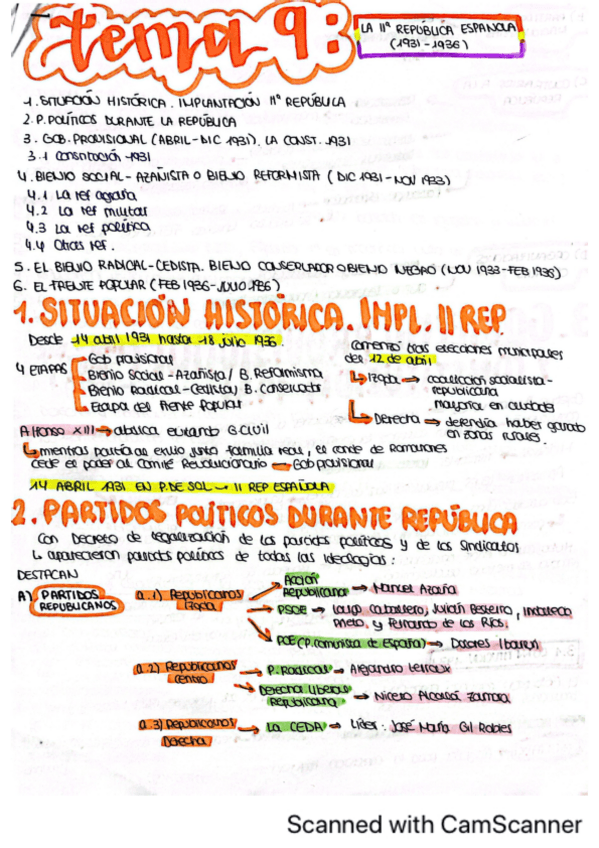 Tema 9:
LA IIª REPÚBLICA ESPAÑOLA
(1931-1936)
1. SITUACIÓN HISTÓRICA. IMPLANTACIÓN IIª REPÚBLICA
2. P. POLÍTICOS DURANTE LA REPÚBLICA
3. GOB. PROVISIONAL (ABRIL-DIC 1931). LA CONST. 1931
3.1 Constitución-1931
4. BIENIO SOCIAL-AZAÑISTA O BIENIO REFORMISTA (DIC 1931-NOV 1933)
4.1 La ref agraria
4.2 La ref militar
4.3 La ref política
4.4 Otras ref.
5. EL BIENIO RADICAL-CEDISTA. BIENIO CONSERVADOR O BIENIO NEGRO (NOV 1933-FEB 1936)
6. EL FRENTE POPULAR (FEB 1936-JULIO 1936)
1. SITUACIÓN HISTÓRICA. IMPL. II REP.
Desde 14 abril 1931 hasta 18 julio 1936.
4 ETAPAS
Gob provisional
Bienio Social-Azañista / B. Reformisma
Bienio Radical-Cedista / B. Conservador
Etapa del Frente Popular
Comenzó tras elecciones municipales
del 12 de abril
Izqda → coalicción socialista-
republicana
mayoría en ciudades
Derecha → defendía haber ganado
en zonas rurales.
Alfonso XIII → abdica evitando G. Civil
mientras partía al exilio junto familia real, el conde de Romanones
cede el poder al Comité Revolucionario → Gob provisional
14 ABRIL 1931 EN P. DE SOL → II REP ESPAÑOLA
2. PARTIDOS POLÍTICOS DURANTE REPÚBLICA
Con Decreto de legalización de los partidos políticos y de los sindicatos
aparecieron partidos políticos de todas las ideologías:
DESTACAN
A) PARTIDOS
REPUBLICANOS
a.1) Republicanos
Izqda
Acción
Republicana → Manuel Azaña
PSOE → Largo Caballero, Julián Besteiro, Indalecio
Prieto, y Fernando de los Ríos.
PCE (P. Comunista de España) → Dolores Ibarruri
a.2) Republicanos
centro
P. Radical → Alejandro Lerroux
Derecha Liberal
Republicana → Niceto Alcalá Zamora
a.3) Republicanos
Derecha
La CEDA → Líder: José María Gil Robles
Scanned with CamScanner